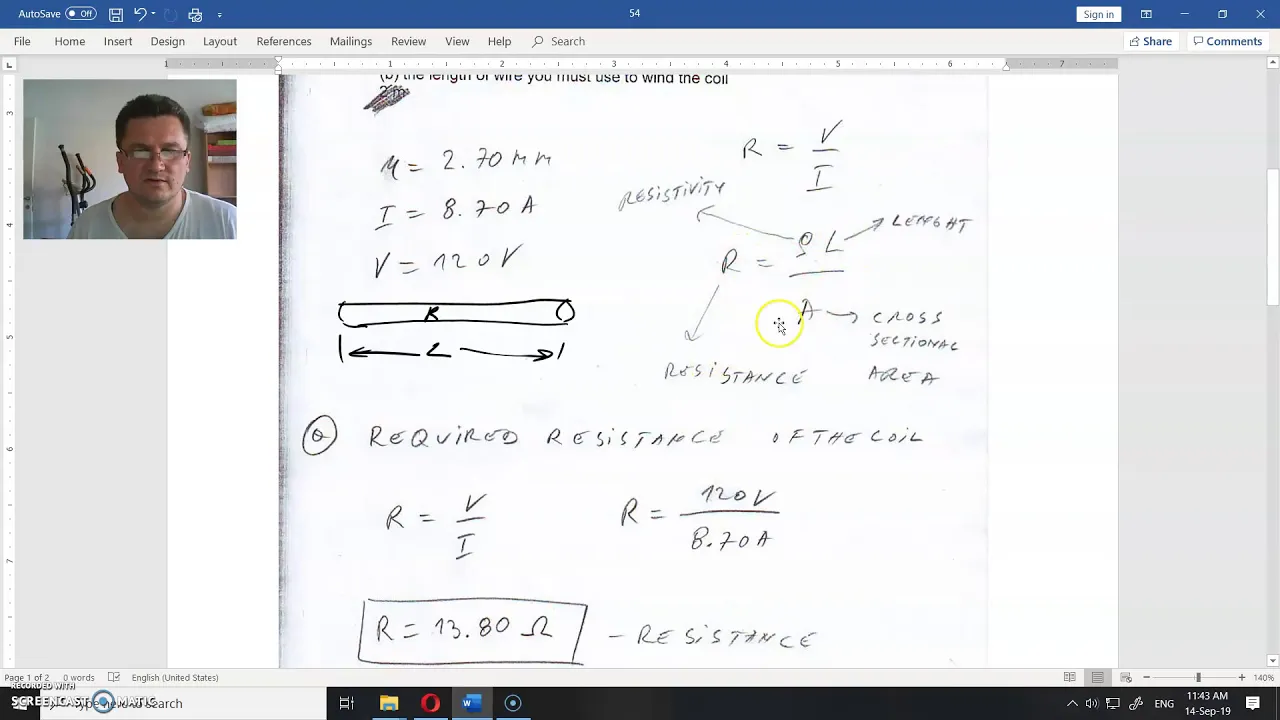 AutoSave Off
54
Sign in
File Home Insert Design Layout References Mailings Review View Help Search
Share Comments
1 1 2 3 4 5 6 7
(b) the length of wire you must use to wind the coil
R = V / I
2.70 mm
RESISTIVITY
I = 8.70 A
LENGHT
R = ρL / A
V = 120 V
R
CROSS
SECTIONAL
L
RESISTANCE AREA
a REQUIRED RESISTANCE OF THE COIL
R = V / I R = 120V / 8.70A
R = 13.80 Ω - RESISTANCE
Page 1 of 2 0 words English (United States) 140%
RECORDED WITH
SCREENCAST MATIC
search
ENG
11:43 AM
14-Sep-19